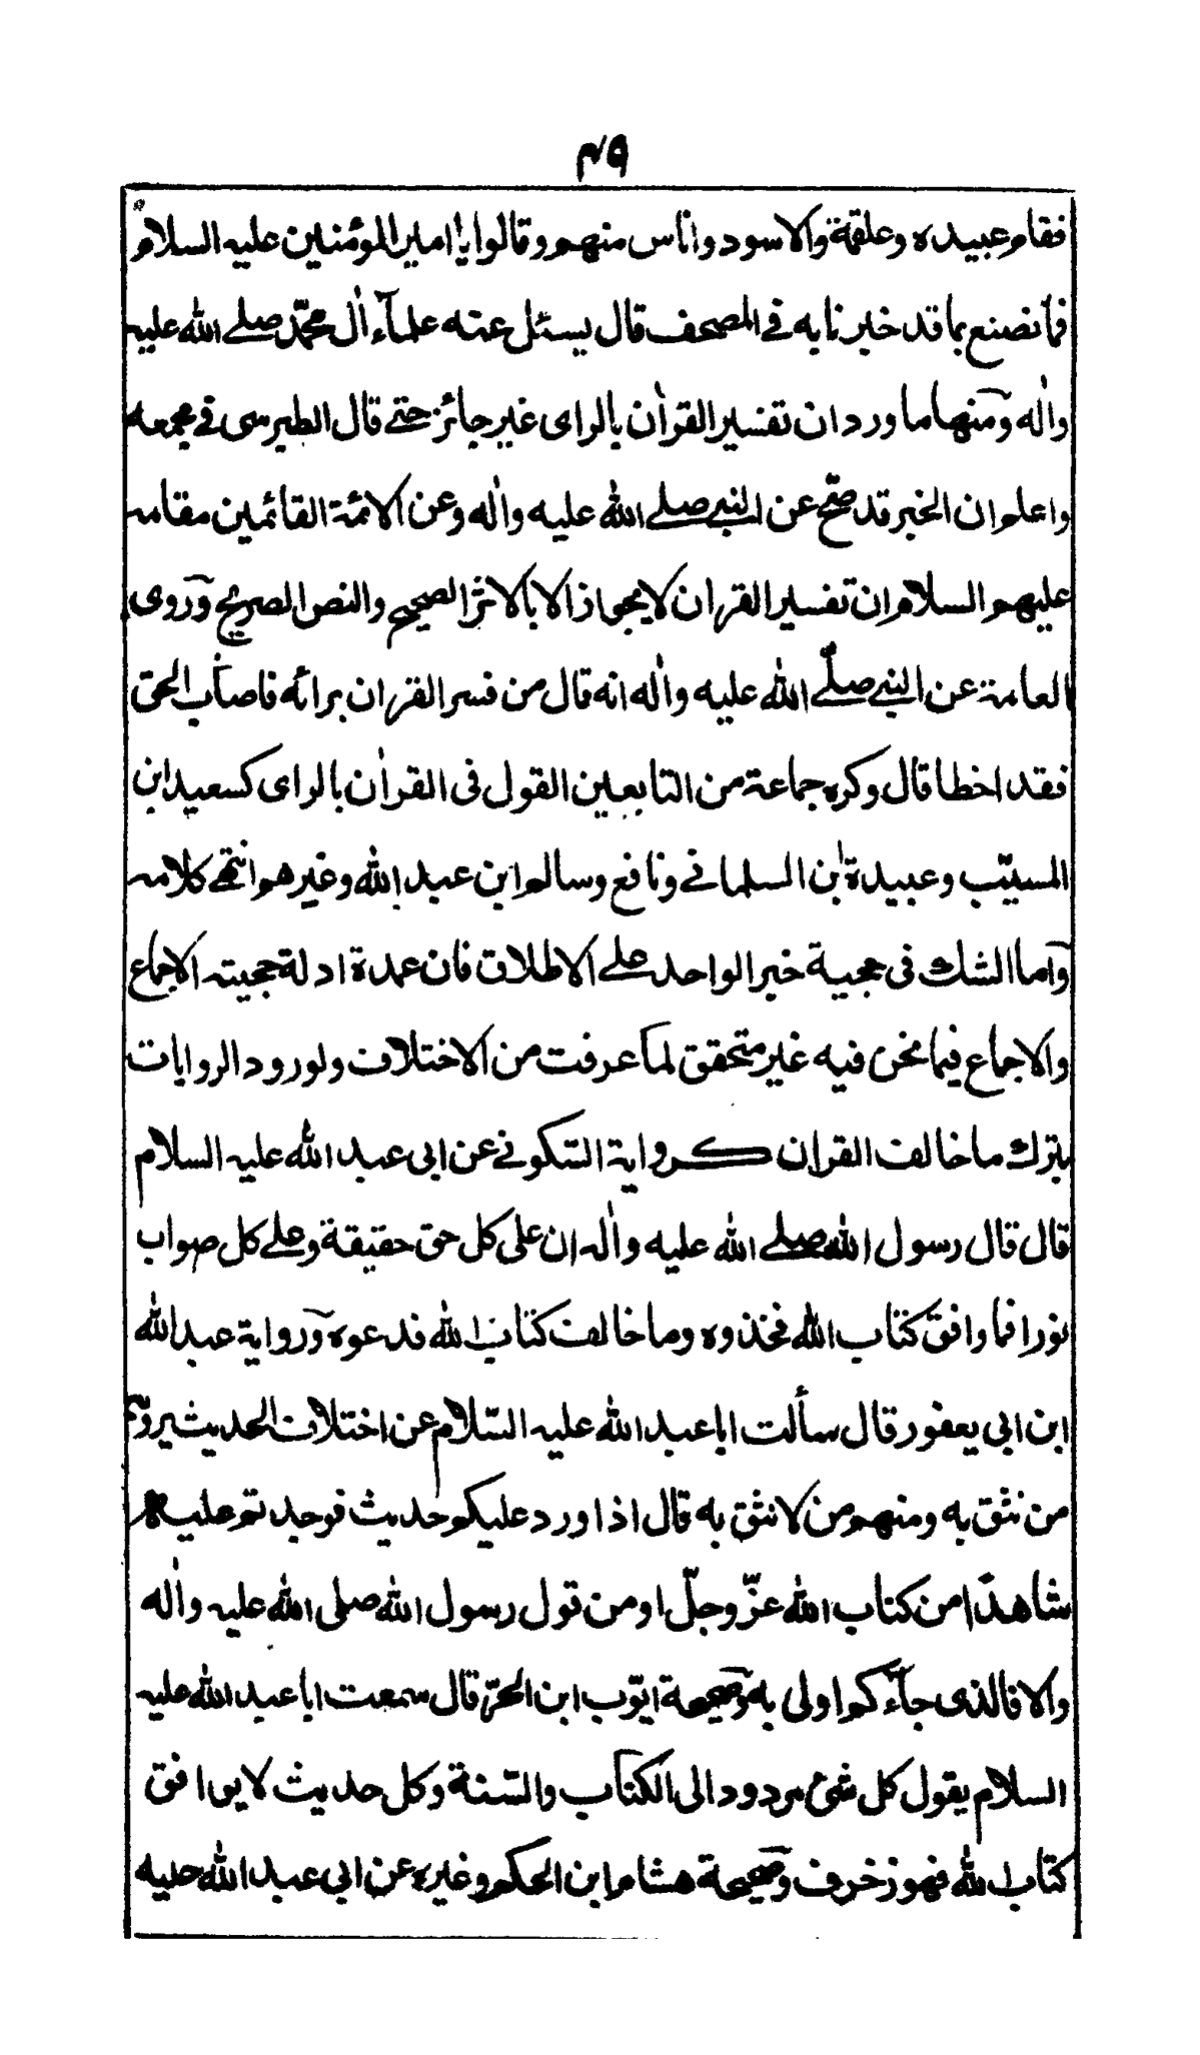 ۴۹
فقام عبيده وعلقمة والاسود واناس منهم وقالوا يا امير المؤمنين عليه السلام
فما نصنع بما قد خبرنا به في المصحف قال يسئل عنه علماء اٰل محمّد صلے الله عليه
واٰله ومنها ما ورد ان تفسير القراٰن بالراى غير جائز حتے قال الطبرسى في مجمعه
واعلم ان الخبر قد صحّ عن النبے صلے الله عليه واٰله وعن الائمة القائمين مقامه
عليهم السلام ان تفسير القران لا يجواز الا بالاثر الصحيح والنص الصريح وروى
العامة عن النبے صلّے الله عليه واٰله انه قال من فسر القران برائه فاصاب الحق
فقد اخطا قال وكره جماعة من التابعين القول فى القراٰن بالراى كسعيد ابن
المسيّب وعبيدة بن السلمانے ونافع وسالم ابن عبد الله وغيرهم انتهے كلامه
واما الشك فى حجية خبر الواحد علے الاطلاق فان عمدة ادلة حجيته الاجماع
والاجماع فيما نحن فيه غير متحقق لما عرفت من الاختلاف ولورود الروايات
بترك ما خالف القران كرواية السكونے عن ابى عبد الله عليه السلام
قال قال رسول الله صلے الله عليه واٰله ان على كل حق حقيقة وعلے كل صواب
نورا فما وافق كتاب الله فخذوه وما خالف كتاب الله فدعوه ورواية عبد الله
ابن ابى يعفور قال سألت ابا عبد الله عليه السّلام عن اختلاف الحديث يرويه
من نثق به ومنهم من لا نثق به قال اذا ورد عليكم حديث فوجد تم عليه
شاهدًا من كتاب الله عزّ وجلّ او من قول رسول الله صلى الله عليه واٰله
والا فالذى جآءكم اولى به وصحيحة ايّوب ابن الحرّ قال سمعت ابا عبد الله عليه
السلام يقول كل شئ مردود الى الكتاب والسّنة وكل حديث لا يوافق
كتاب الله فهو زخرف وصحيحة هشام ابن الحكم وغيره عن ابى عبد الله عليه